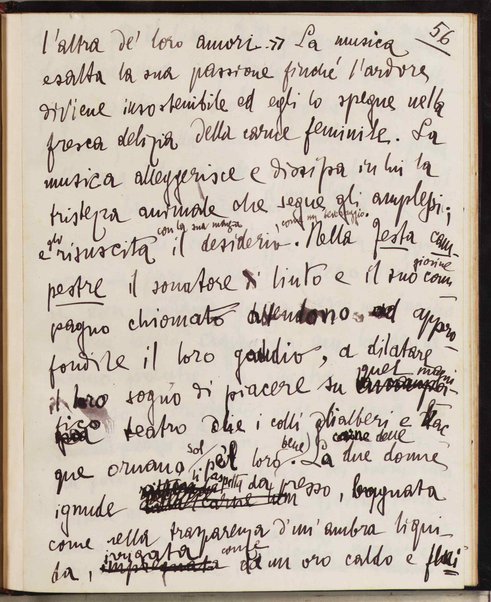 56
l'altra de' loro amori -» La musica
esalta la sua passione finché l'ardore
diviene insostenibile ed egli lo spegne nella
fresca delizia della carne feminile. La
musica alleggerisce e dissipa in lui la
tristezza animale che segue gli amplessi;
con la sua come un
e gli risuscita il desiderio. Nella Festa cam-
giovine
pestre il sonatore di liuto e il suo com
pagno chiomato attendono ad appro-
fondire il loro gaudio, a dilatare
quel magni
il loro sogno di piacere su
fico teatro che i colli gli alberi e l'ac
sol bene
que ornano per loro. La due donne
ignude da presso, bagnata
come nella trasparenza d'un'ambra liqui-
irrigata come
da, impregnata da un oro caldo e